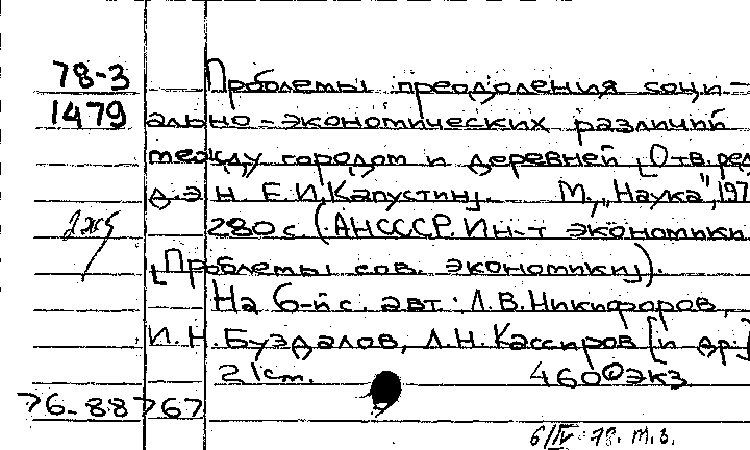 78-3 Проблемы преодоления соци-
1479 ально-экономических различий
между городом и деревней [Отв. ред.
д.э.н. Е.И. Капустин]. М., „Наука", 197
280 с. (АН СССР. Ин-т экономики.
[Проблемы сов. экономики]).
На 6-й с. авт.: Л.В. Никифоров,
И.Н. Буздалов, Л.Н. Кассиров [и др.]
21 cm. 4600 экз.
76-88767
6/IV-78. т.з.